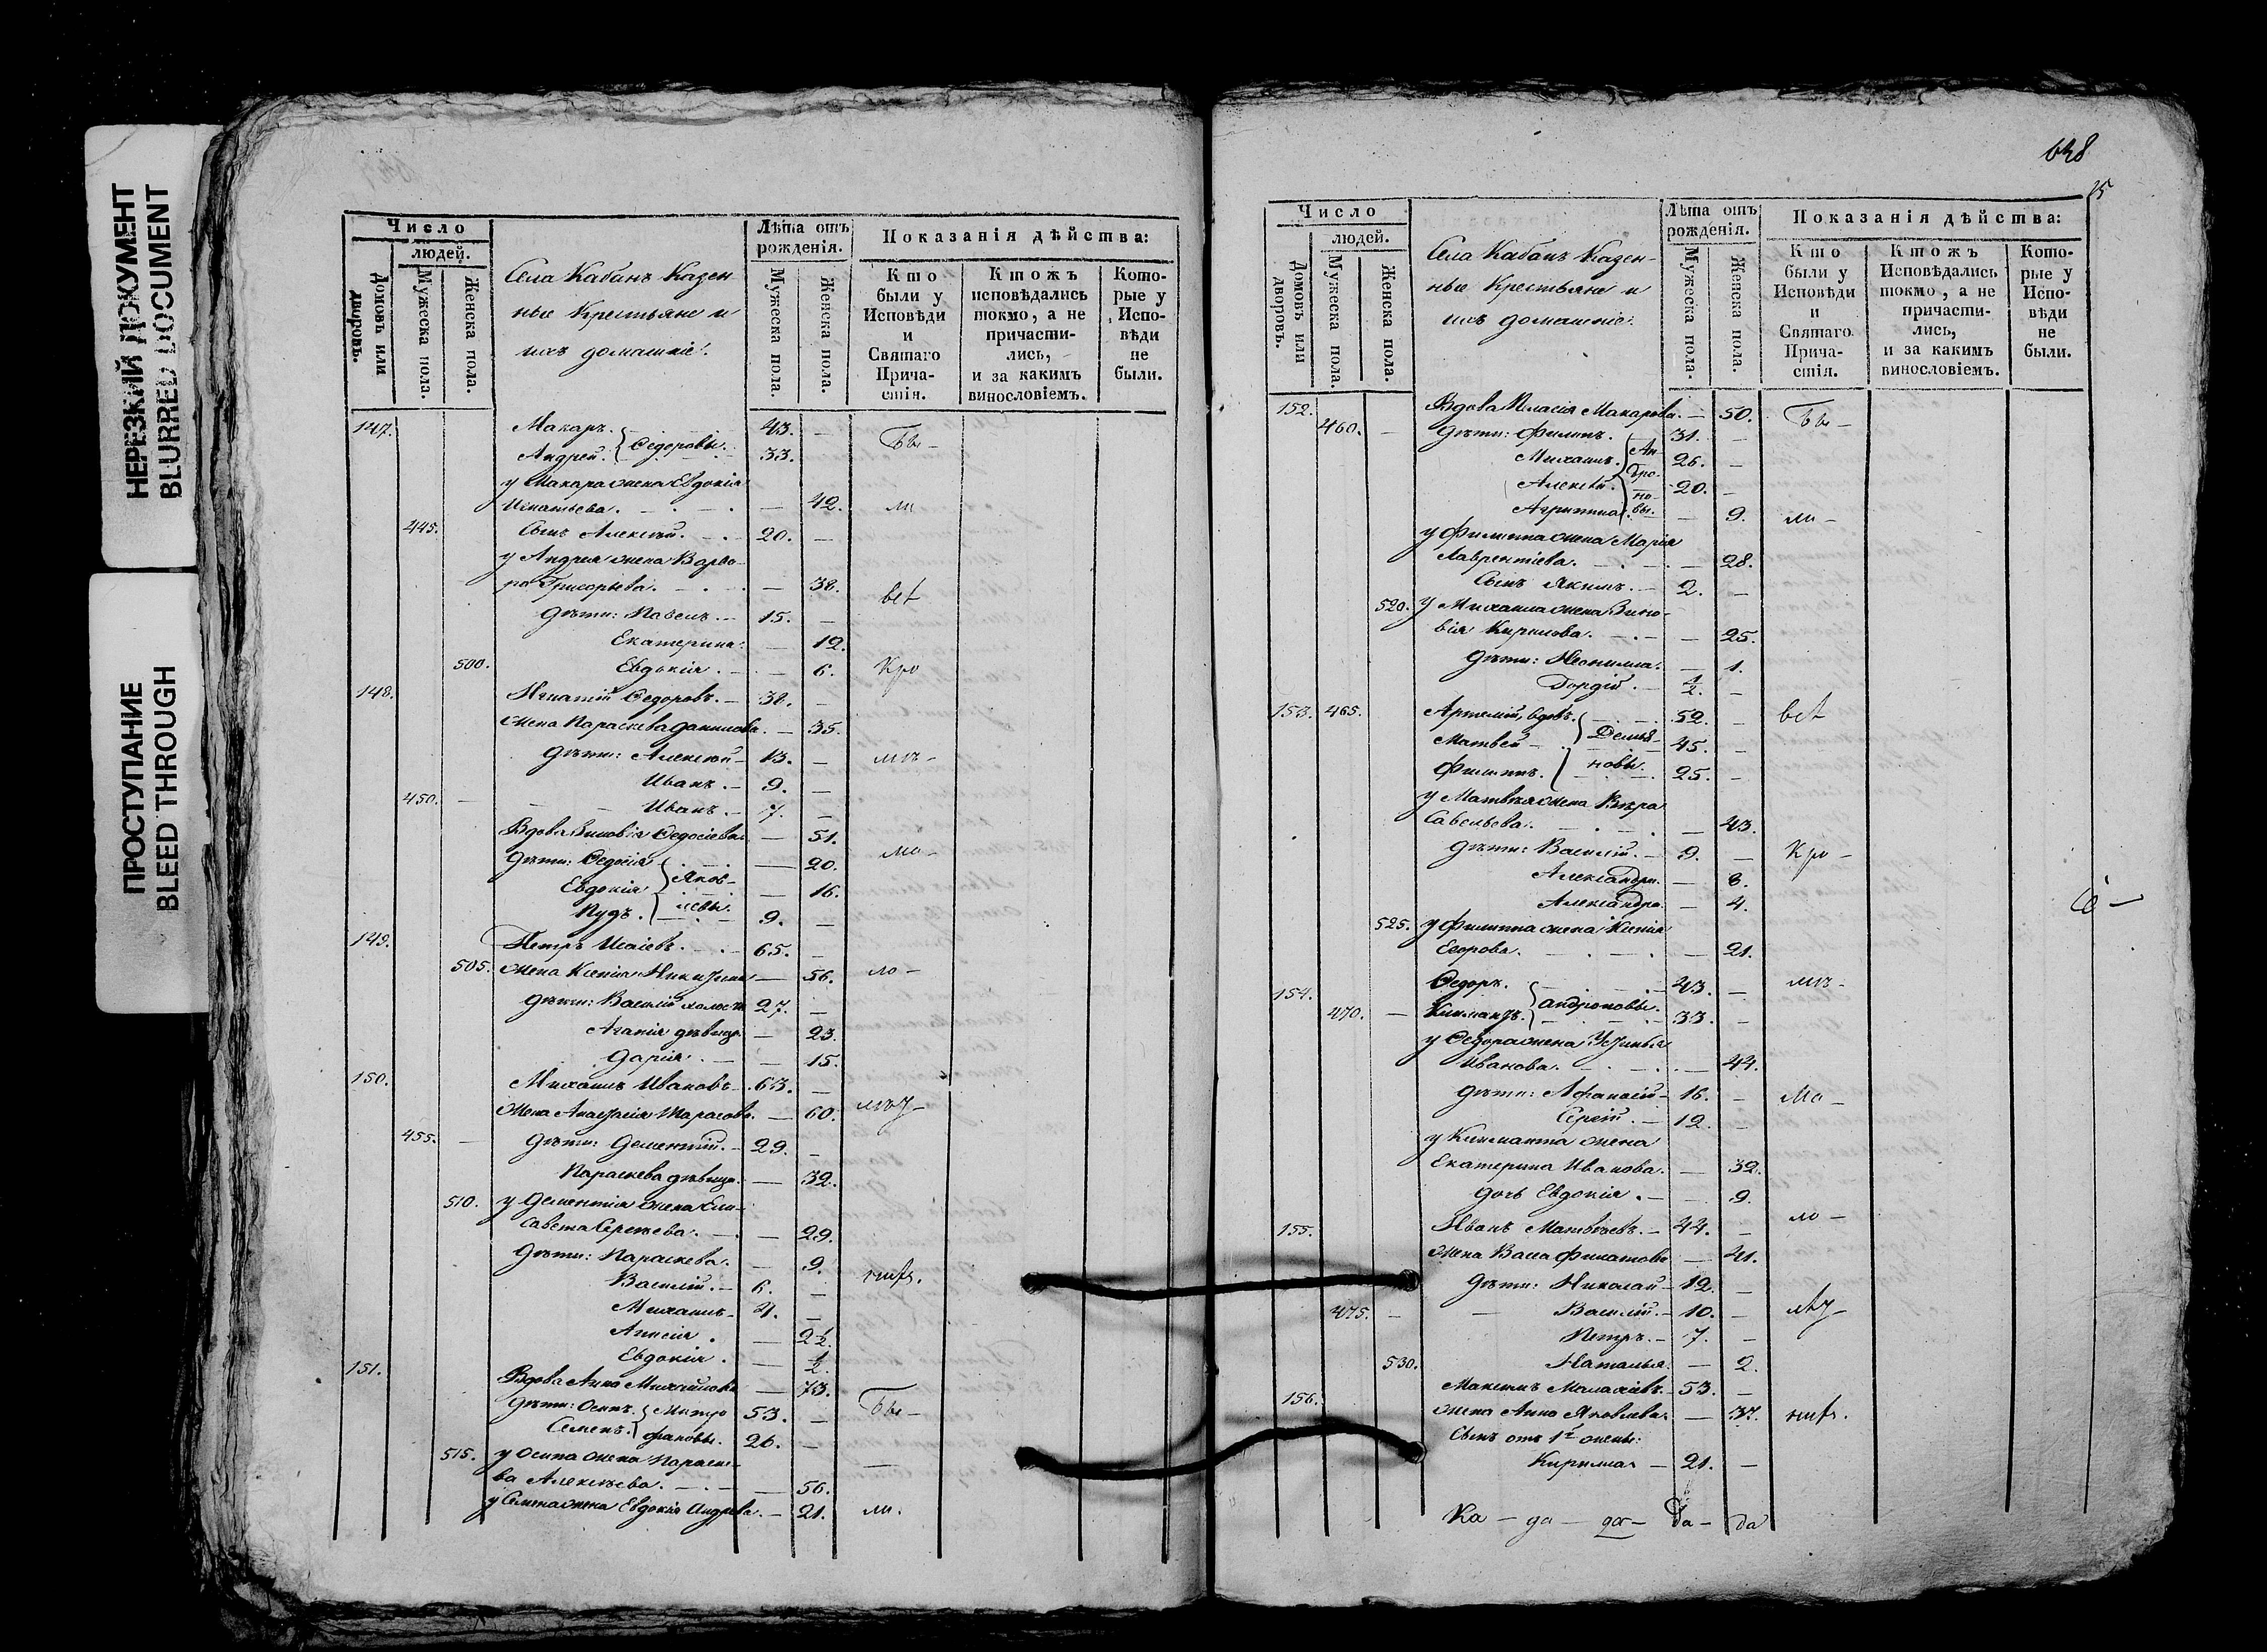 НЕРЕЗКИЙ ДОКУМЕНТ
BLURRED DOCUMENT
ПРОСТУПАНИЕ
BLEED THROUGH
Число
людей.
Домовъ или дворовъ.
Мужеска пола.
Женска пола.
Села Кабанъ Казен-
ные Крестьяне и
ихъ домашніе:
Лѣта отъ рожденія.
Мужеска пола.
Женска пола.
Показанія дѣйства:
Кто были у Исповѣди и Святаго Прича-стія.
Ктожъ исповѣдались токмо, а не причасти-лись, и за какимъ винословіемъ.
Кото-рые у Испо-вѣди не были.
147. Макаръ. 43. —
Андрей. Ѳедоровы. 33.
у Макара жена Евдокія
Игнатьева. — 42.
445. Сынъ Алексѣй. 20. —
у Андрея жена Варва-
ра Григорьева. — 38.
дѣти: Павелъ. 15. —
Екатерина. — 12.
500. Евдокія. — 6.
148. Игнатій Ѳедоровъ. 38. —
жена Параскева Данилова. — 35.
дѣти: Алексѣй 13. —
Иванъ. 9. —
450. Иванъ. 7. —
Вдова Зиновія Ѳедосіева. — 51.
дѣти: Ѳедосія — 20.
Евдокія Яков- — 16.
Пудъ. левы. 9. —
149. Петръ Исаіевъ. 65. —
505. жена Ксенія Никитина — 56.
дѣти: Василій холостъ 27. —
Агапія дѣвица. — 23.
Дарія. — 15.
150. Михаилъ Ивановъ 63. —
жена Анастасія Тарасова. — 60.
455. дѣти: Дементій. 29. —
Параскева дѣвица. — 32.
510. у Дементія жена Ели-
савета Сергѣева. — 29.
дѣти: Параскева. — 9.
Василій. 6. —
Михаилъ 4. —
Анисія. — 2½.
Евдокія. — ½.
151. Вдова Анна Михайлова — 73.
дѣти: Осипъ. Митро 53. —
Семенъ. фановы. 26. —
515. у Осипа жена Параске-
ва Алексѣева. — 56.
у Семена жена Евдокія Андреева. — 21.
638
Число
людей.
Домовъ или дворовъ.
Мужеска пола.
Женска пола.
Села Кабанъ Казен-
ные Крестьяне и
ихъ домашніе:
Лѣта отъ рожденія.
Мужеска пола.
Женска пола.
Показанія дѣйства:
Кто были у Исповѣди и Святаго Прича-стія.
Ктожъ Исповѣдались токмо, а не причасти-лись, и за какимъ винословіемъ.
Кото-рые у Испо-вѣди не были.
152. Вдова Макарова. — 50.
460. дѣти: Филипъ. 31. —
Михаилъ. Ан 26. —
Алексѣй. дро- 20. —
Агрипина. но-вы. — 9.
у Филиппа жена Марія
Лаврентіева. — 28.
Сынъ Якимъ. 2. —
520. у Михаила жена Зино-
вія Кирилова. — 25.
дѣти: Неонилла. — 1.
Гордій. ½. —
153. 465. Артемій, вдовъ. 52. —
Матвей Демья- 45. —
Филиппъ. новы. 25. —
у Матвѣя жена Вѣра
Савельева. — 43.
дѣти: Василій. 9. —
Александра. — 8.
Александра. — 4.
525. у Филиппа жена Ксенія
Егорова. — 21.
154. Ѳедоръ. 43. —
470. Андроновы. 33. —
у Ѳедора жена Устинья
Иванова. — 44.
дѣти: Афанасій 16. —
Сергій. 12. —
жена
Екатерина Иванова. — 32.
дочь Евдокія. — 9.
155. Иванъ Матвѣевъ. 44. —
жена Васса Филатова — 41.
дѣти: Николай 12. —
475. Василій. 10. —
Петръ. 7. —
530. Наталья. — 2.
156. Максимъ Малахіевъ. 53. —
жена Анна Яковлева. — 37.
Сынъ отъ 1й жены:
Кириллъ 21. —